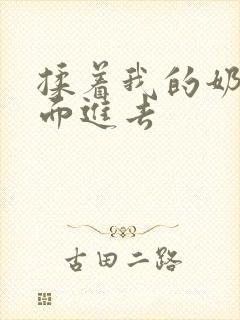 揉着我的奶
而進去
古田二路